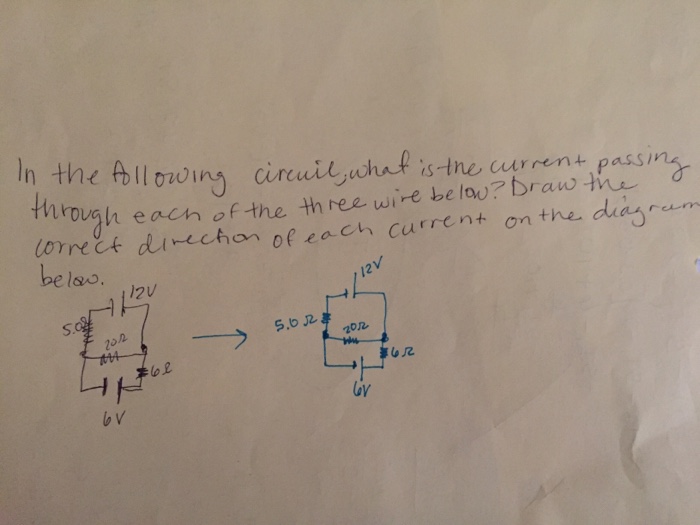 In the following circuit, what is the current passing
through each of the three wire below? Draw the
correct direction of each current on the diagram
below.
12V
5.0Ω
20Ω
6Ω
6V
12V
5.0Ω
20Ω
6Ω
6V